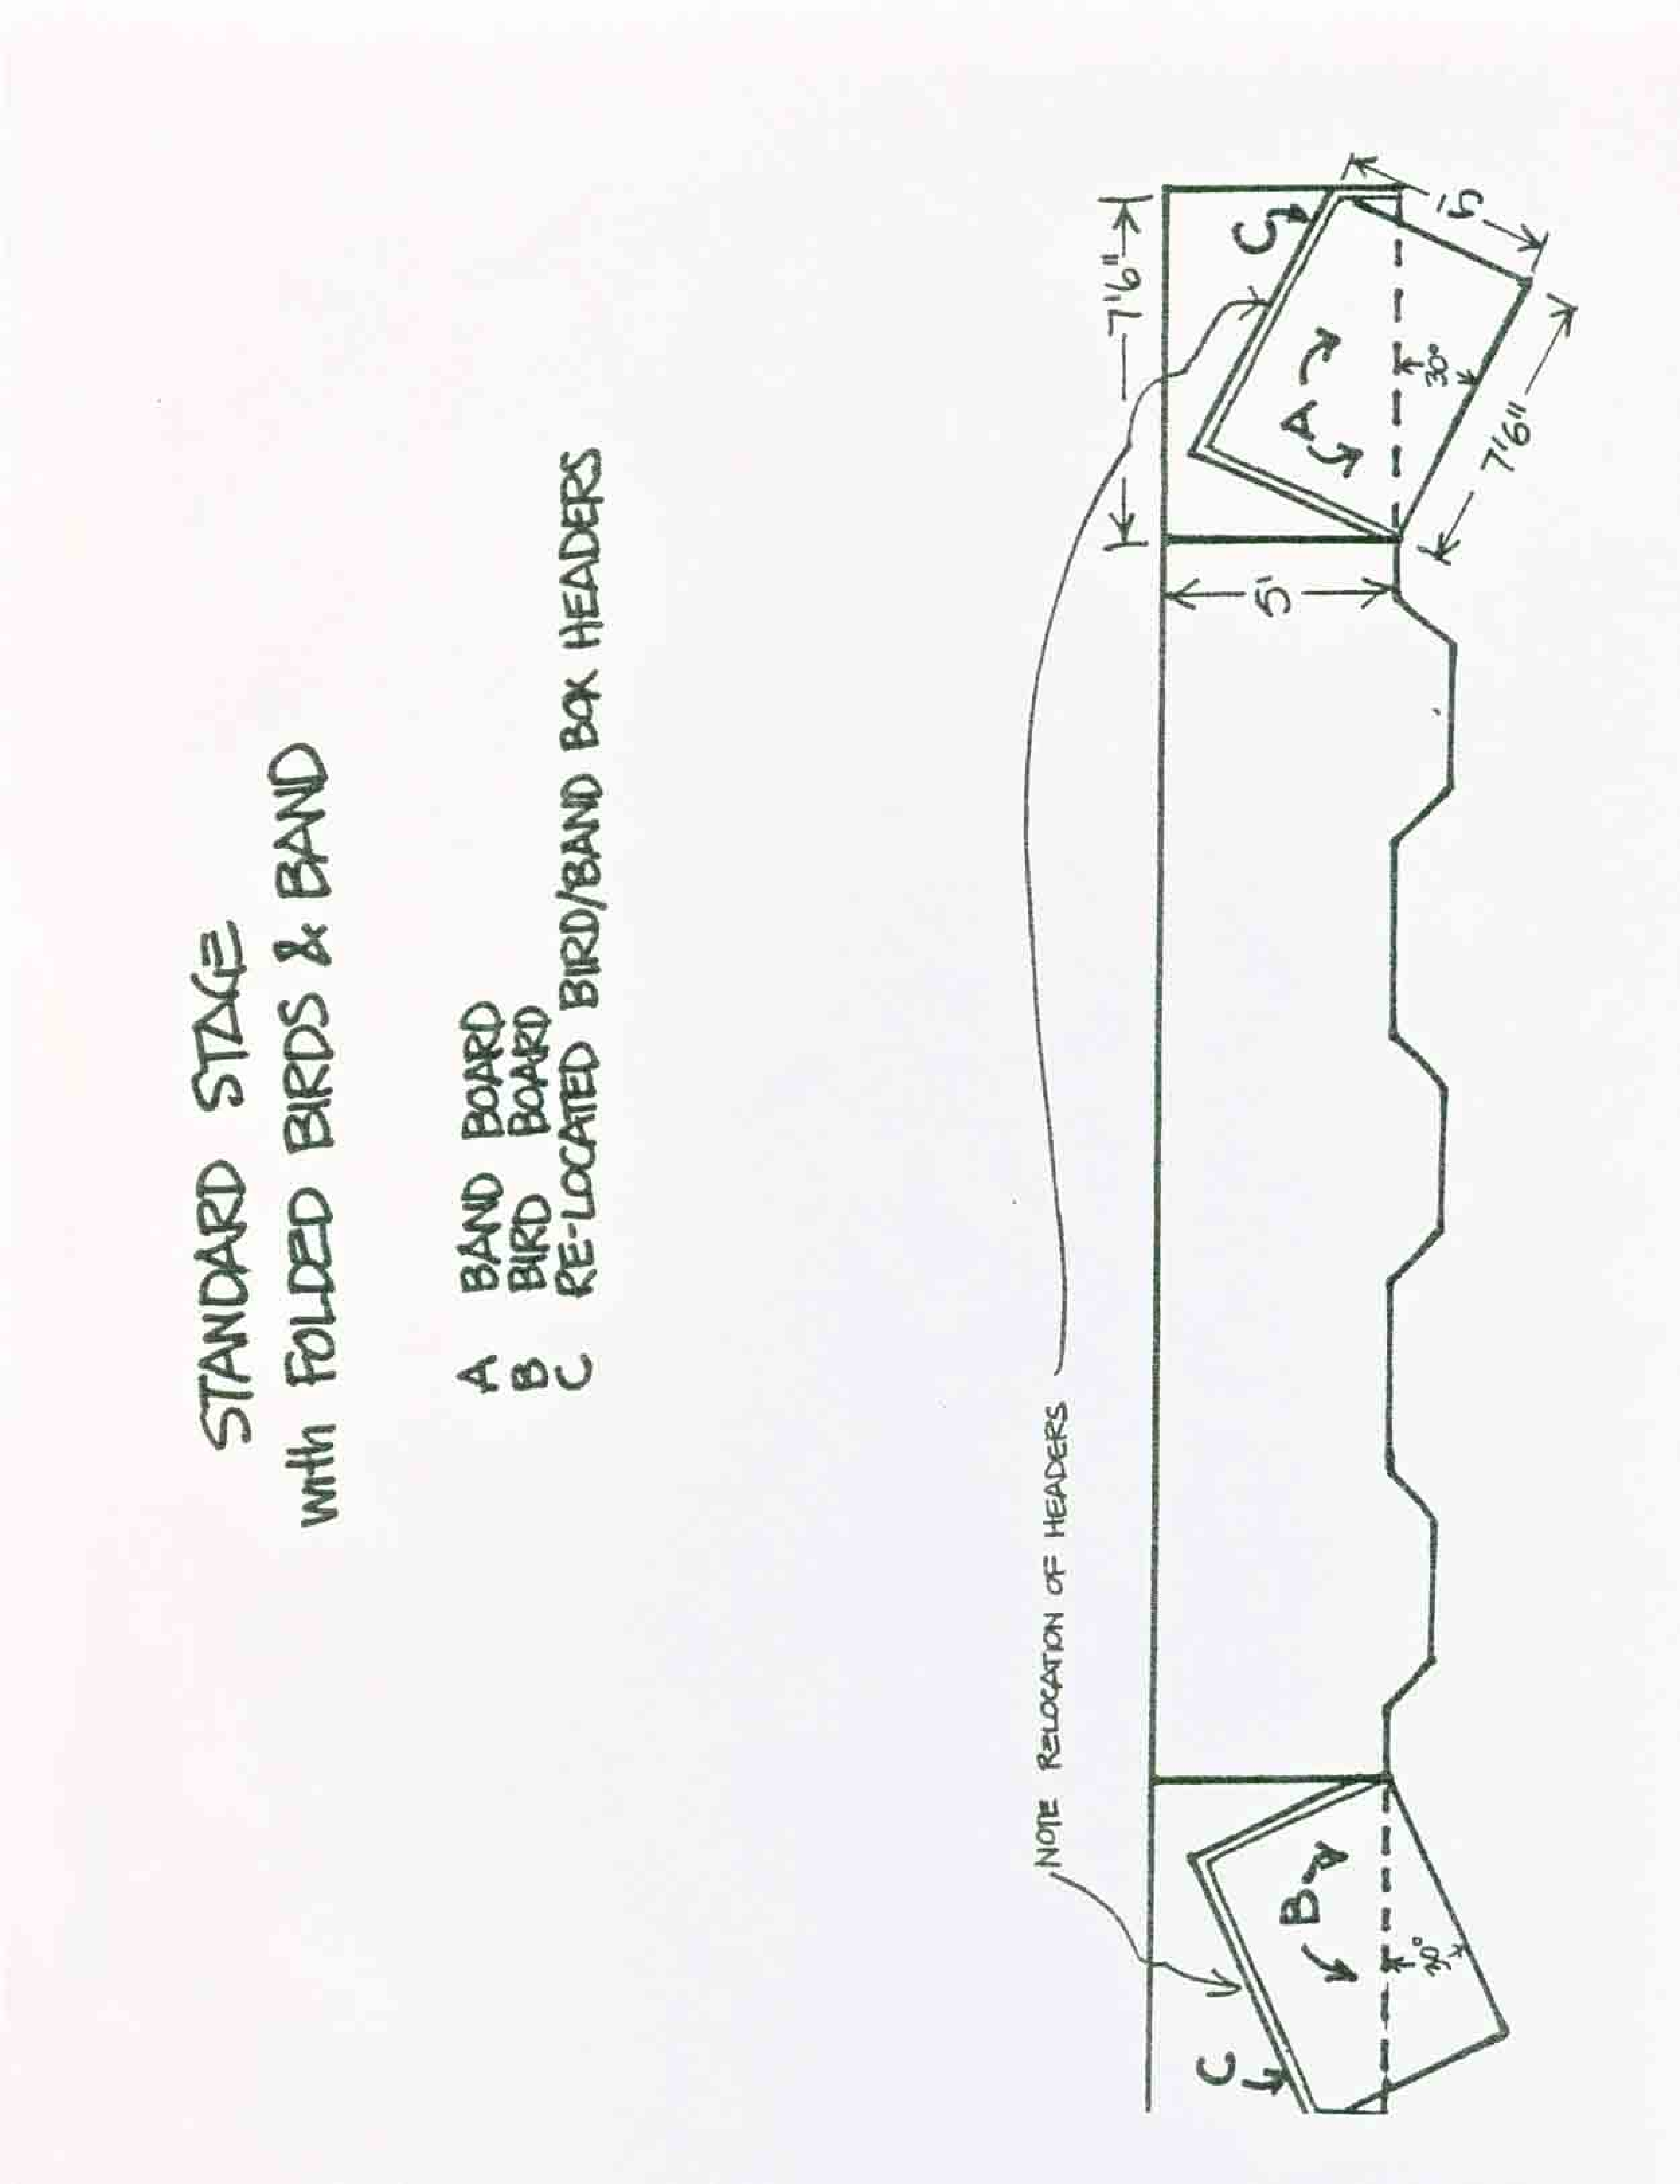 STANDARD STAGE
with FOLDED BIRDS & BAND
A BAND BOARD
B BIRD BOARD
C RE-LOCATED BIRD/BAND BOX HEADERS
NOTE RELOCATION OF HEADERS
7'6"
C
5'
A
30°
7'6"
5'
C
B
30°